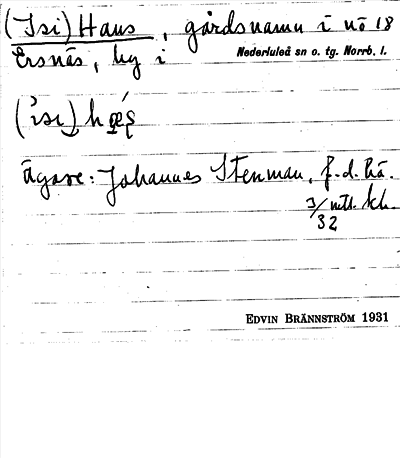 (Isi) Hans, gårdsnamn i nö 18
Ersnäs, by i Nederluleå sn o. tg. Norrb. l.
Ägare: Johannes Stenman, f.d. hä.
3/32 mtl. kh.
EDVIN BRÄNNSTRÖM 1931